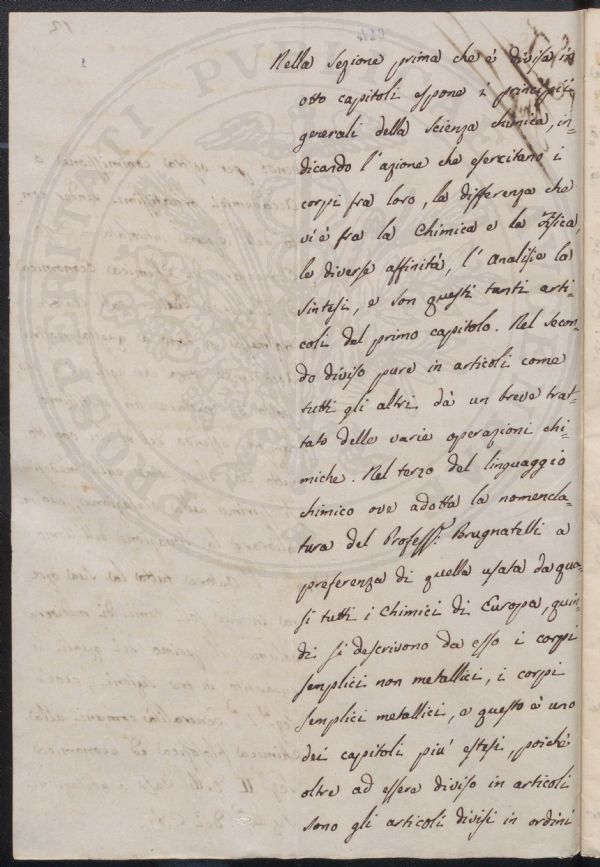 Nella Sezione prima che è divisa in
otto capitoli espone i principii
generali della Scienza chimica, in-
dicando l'azione che esercitano i
corpi fra loro, la differenza che
vi è fra la Chimica e la Fisica,
le diverse affinità, l'Analisi e la
sintesi, e son questi tanti arti-
coli del primo capitolo. Nel secon-
do diviso pure in articoli come
tutti gli altri dà un breve trat-
tato delle varie operazioni chi-
miche. Nel terzo del linguaggio
chimico ove adotta la nomencla-
tura del Profess.r Brugnatelli a
preferenza di quella usata da qua-
si tutti i Chimici di Europa, quin-
di si descrivono da esso i corpi
semplici non metallici, i corpi
semplici metallici, e questo è uno
dei capitoli piu' estesi, poichè
oltre ad essere diviso in articoli
sono gli articoli divisi in ordini
PROSPERITATI PUBLICAE